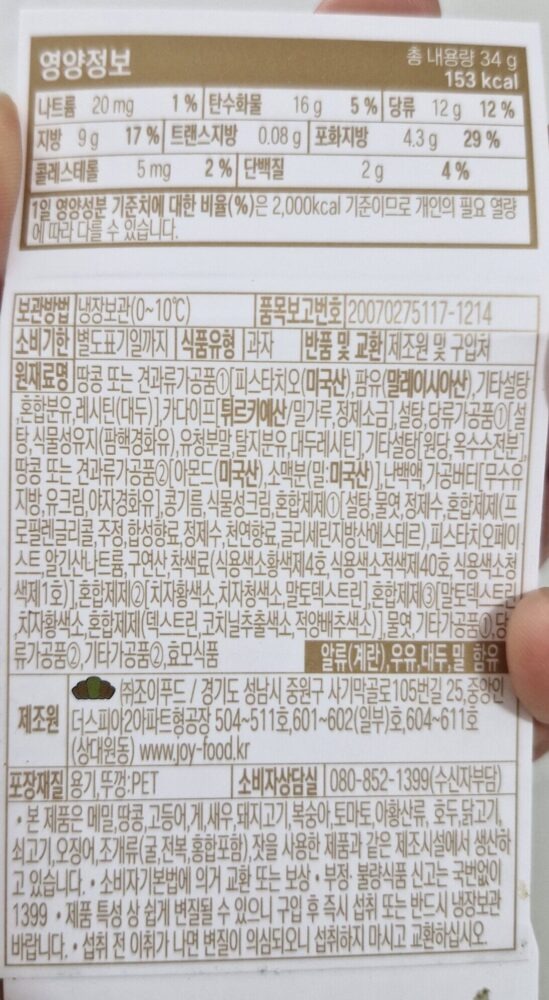 영양정보 총 내용량 34 g
153 kcal
나트륨 20 mg 1 % 탄수화물 16 g 5 % 당류 12 g 12 %
지방 9 g 17 % 트랜스지방 0.08 g 포화지방 4.3 g 29 %
콜레스테롤 5 mg 2 % 단백질 2 g 4 %
1일 영양성분 기준치에 대한 비율(%)은 2,000kcal 기준이므로 개인의 필요 열량
에 따라 다를 수 있습니다.
보관방법 냉장보관(0~10℃) 품목보고번호 20070275117-1214
소비기한 별도표기일까지 식품유형 과자 반품 및 교환 제조원 및 구입처
원재료명 땅콩 또는 견과류가공품①[피스타치오(미국산),팜유(말레이시아산),기타설탕
,혼합분유,레시틴(대두)],카다이프[튀르키예산/밀가루,정제소금],설탕,당류가공품①[설
탕,식물성유지(팜핵경화유),유청분말,탈지분유,대두레시틴],기타설탕[원당,옥수수전분],
땅콩 또는 견과류가공품②[아몬드(미국산),소맥분(밀:미국산)],난백액,가공버터[무수유
지방,유크림,야자경화유],콩기름,식물성크림,혼합제제①[설탕,물엿,정제수,혼합제제(프
로필렌글리콜,주정,합성향료,정제수,천연향료,글리세린지방산에스테르),피스타치오페이
스트,알긴산나트륨,구연산,착색료(식용색소황색제4호,식용색소적색제40호,식용색소청
색제1호)],혼합제제②[치자황색소,치자청색소,말토덱스트린],혼합제제③[말토덱스트린
,치자황색소,혼합제제(덱스트린,코치닐추출색소,적양배추색소)],물엿,기타가공품①,당
류가공품②,기타가공품②,효모식품 알류(계란),우유,대두,밀 함유
제조원 ㈜조이푸드 / 경기도 성남시 중원구 사기막골로105번길 25,중앙인
더스피아2아파트형공장 504~511호,601~602(일부)호,604~611호
(상대원동) www.joy-food.kr
포장재질 용기,뚜껑:PET 소비자상담실 080-852-1399(수신자부담)
• 본 제품은 메밀,땅콩,고등어,게,새우,돼지고기,복숭아,토마토,아황산류,호두,닭고기,
쇠고기,오징어,조개류(굴,전복,홍합포함),잣을 사용한 제품과 같은 제조시설에서 생산하
고 있습니다. • 소비자기본법에 의거 교환 또는 보상 • 부정·불량식품 신고는 국번없이
1399 • 제품 특성 상 쉽게 변질될 수 있으니 구입 후 즉시 섭취 또는 반드시 냉장보관
바랍니다. • 섭취 전 이취가 나면 변질이 의심되오니 섭취하지 마시고 교환하십시오.